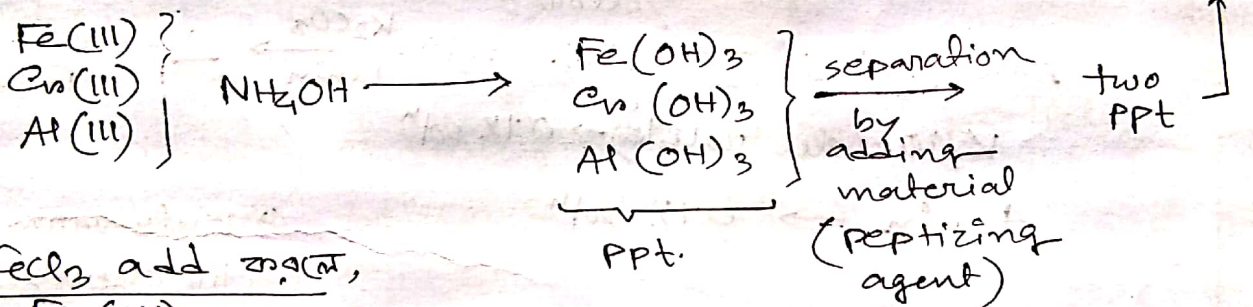 Fe(III)
Cr(III)
Al(III)
NH4OH
Fe(OH)3
Cr(OH)3
Al(OH)3
ppt.
separation
by
adding
material
(peptizing
agent)
two
ppt
FeCl3 add করলে,